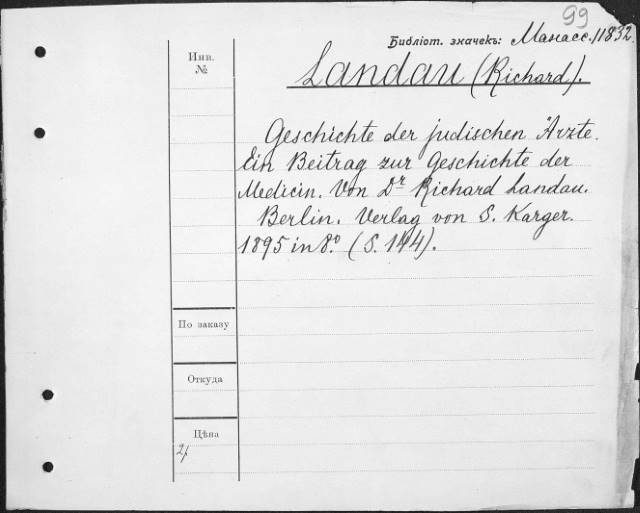 99
Библіот. значекъ: Манасс. 11832.
Инв.
№
Landau (Richard).
Geschichte der judischen Ärzte.
Ein Beitrag zur Geschichte der
Medicin. Von Dr Richard Landau.
Berlin. Verlag von S. Karger.
1895 in 8.° (S. 144).
По заказу
Откуда
Цѣна